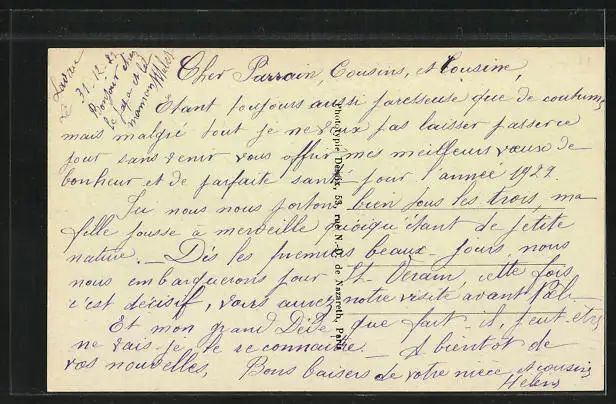 La Varenne
31.12.28
Bonjour chez
le papa et la
maman
Cher Parrain, Cousins, et Cousine,
Etant toujours aussi paresseuse que de coutume
mais malgré tout je ne veux pas laisser passer ce
jour sans venir vous offrir mes meilleurs vœux de
bonheur et de parfaite santé pour l'année 1929.
Ici nous nous portons bien tous les trois, ma
fille pousse à merveille quoiqu'étant de petite
nature. _ Dès les premiers beaux jours nous
nous embarquerons pour St. Vérain, cette fois
c'est décisif, vous aurez notre visite avant
Et mon grand Dédé que fait-il, peut-être
ne vais-je le reconnaître _ A bientôt de
vos nouvelles, Bons baisers de votre nièce et cousine
Hélène
Phototypie Desaix, 53, rue N.-D. de Nazareth, Paris